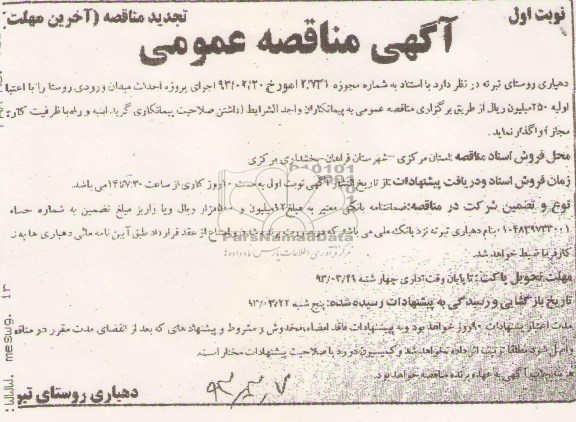 نوبت اول
تجدید مناقصه (آخرین مهلت)
آگهی مناقصه عمومی
دهیاری روستای تبرته در نظر دارد با استناد به شماره مجوزه ۲.۷۳۱ مورخ ۹۳/۰۲/۲۰ اجرای پروژه احداث میدان ورودی روستا را با اعتبا
اولیه ۲۵۰میلیون ریال از طریق برگزاری مناقصه عمومی به پیمانکاران واجد الشرایط (داشتن صلاحیت پیمانکاری گرید ابنیه و راه با ظرفیت کاری
مجاز) واگذار نماید.
محل فروش اسناد مناقصه :استان مرکزی -شهرستان فراهان-بخشداری مرکزی
زمان فروش اسناد ودریافت پیشنهادات :از تاریخ انتشار آگهی نوبت اول به مدت ۱۰روز کاری از ساعت ۷:۳۰ تا۱۴ می باشد.
نوع و تضمین شرکت در مناقصه:ضمانتنامه بانکی معتبر به مبلغ ۱۲میلیون و ۵۰۰هزار ریال ویا واریز مبلغ تضمین به شماره حساب
۰۱۰۴۸۳۹۷۳۳۰۰۱ بنام دهیاری تبرته نزد بانک ملی می باشد که در صورت برنده شدن و امتناع از عقد قرارداد طبق آیین نامه مالی دهیاری ها
کارفرما ضبط خواهد شد.
مهلت تحویل پاکت: تا پایان وقت اداری چهارشنبه
تاریخ بازگشایی و رسیدگی به پیشنهادات رسیده شده: پنج شنبه ۹۳/۰۳/۲۲
مدت اعتبار پیشنهادات ۹۰روز خواهد بود وبه پیشنهادات فاقد امضاء،مخدوش و مشروط و پیشنهاد های که بعد از انقضای مدت مقرر در مناقصه
واصل شود مطلقا ترتیب اثر داده نخواهد شد وکمیسیون در رد یا صلاحیت پیشنهادات مختار است.
هزینه چاپ آگهی به عهده برنده مناقصه خواهد بود.
دهیاری روستای تبر
۹۳،۳،۷
ParsNamadData
مرکز فرآوری اطلاعات پارس نماد داده ها